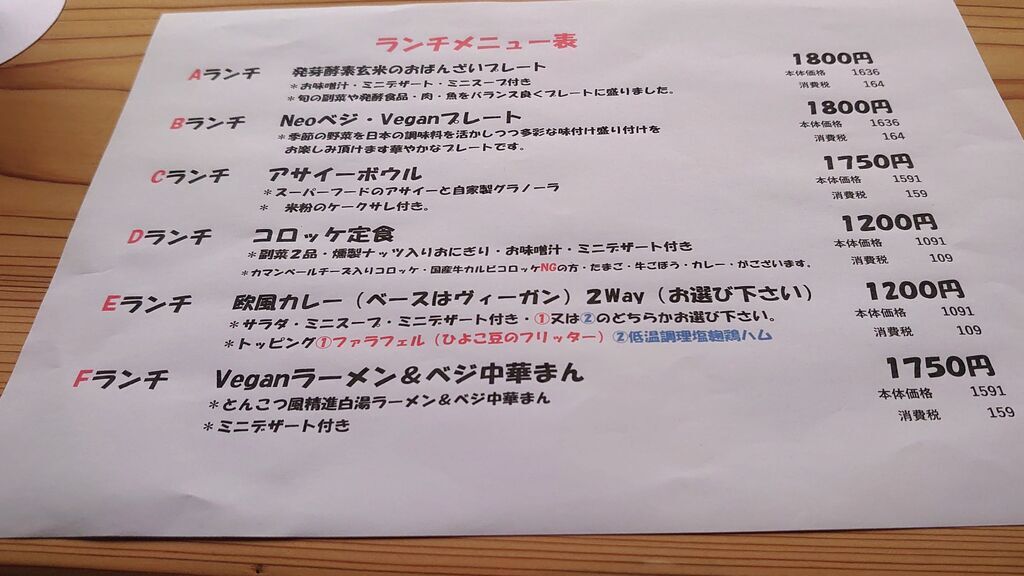 ランチメニュー表
Aランチ 発芽酵素玄米のおばんざいプレート 1800円
＊お味噌汁・ミニデザート・ミニスープ付き 本体価格 1636
＊旬の副菜や発酵食品・肉・魚をバランス良くプレートに盛りました。 消費税 164
Bランチ Neoベジ・Veganプレート 1800円
＊季節の野菜を日本の調味料を活かしつつ多彩な味付け盛り付けを 本体価格 1636
お楽しみ頂けます華やかなプレートです。 消費税 164
Cランチ アサイーボウル 1750円
＊スーパーフードのアサイーと自家製グラノーラ 本体価格 1591
＊ 米粉のケークサレ付き。 消費税 159
Dランチ コロッケ定食 1200円
＊副菜２品・燻製ナッツ入りおにぎり・お味噌汁・ミニデザート付き 本体価格 1091
＊カマンベールチーズ入りコロッケ・国産牛カルビコロッケNGの方・たまご・牛ごぼう・カレー・がございます。 消費税 109
Eランチ 欧風カレー（ベースはヴィーガン）２Way（お選び下さい） 1200円
＊サラダ・ミニスープ・ミニデザート付き・①又は②のどちらかお選び下さい。 本体価格 1091
＊トッピング①ファラフェル（ひよこ豆のフリッター）②低温調理塩麹鶏ハム 消費税 109
Fランチ Veganラーメン＆ベジ中華まん 1750円
＊とんこつ風精進白湯ラーメン＆ベジ中華まん 本体価格 1591
＊ミニデザート付き 消費税 159